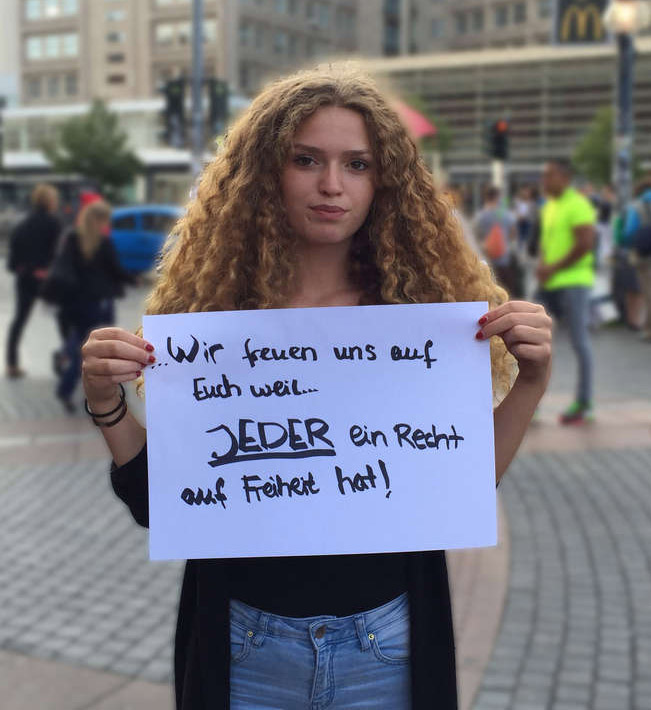 ...Wir freuen uns auf
Euch weil...
JEDER ein Recht
auf Freiheit hat!